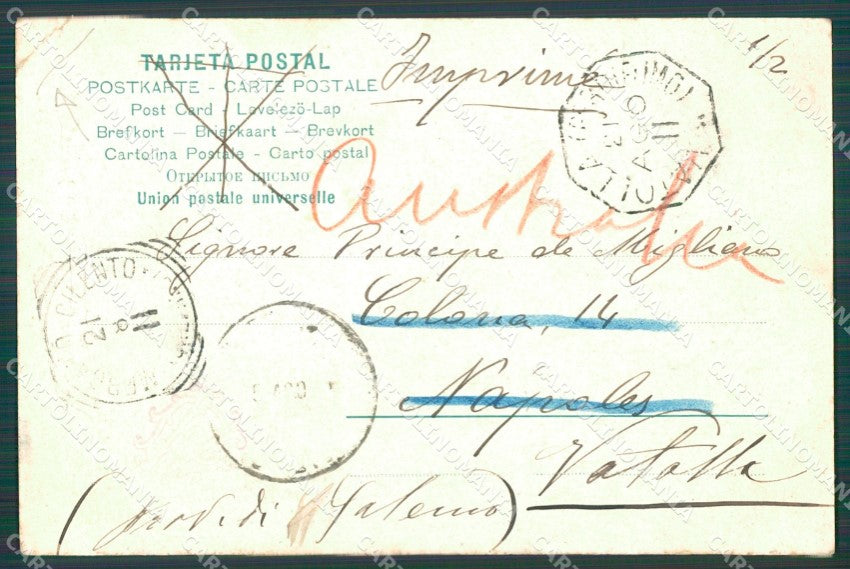 TARJETA POSTAL
POSTKARTE - CARTE POSTALE
Post Card - Levelezö-Lap
Brefkort - Briefkaart - Brevkort
Cartolina Postale - Carto postal
Открытое письмо
Union postale universelle
Imprimé
1/2
Australia
Signore Principe de Migliano
Colona, 14
Napoles
Vatolla
(prov. di Salerno)
CILENTO
21 8 11